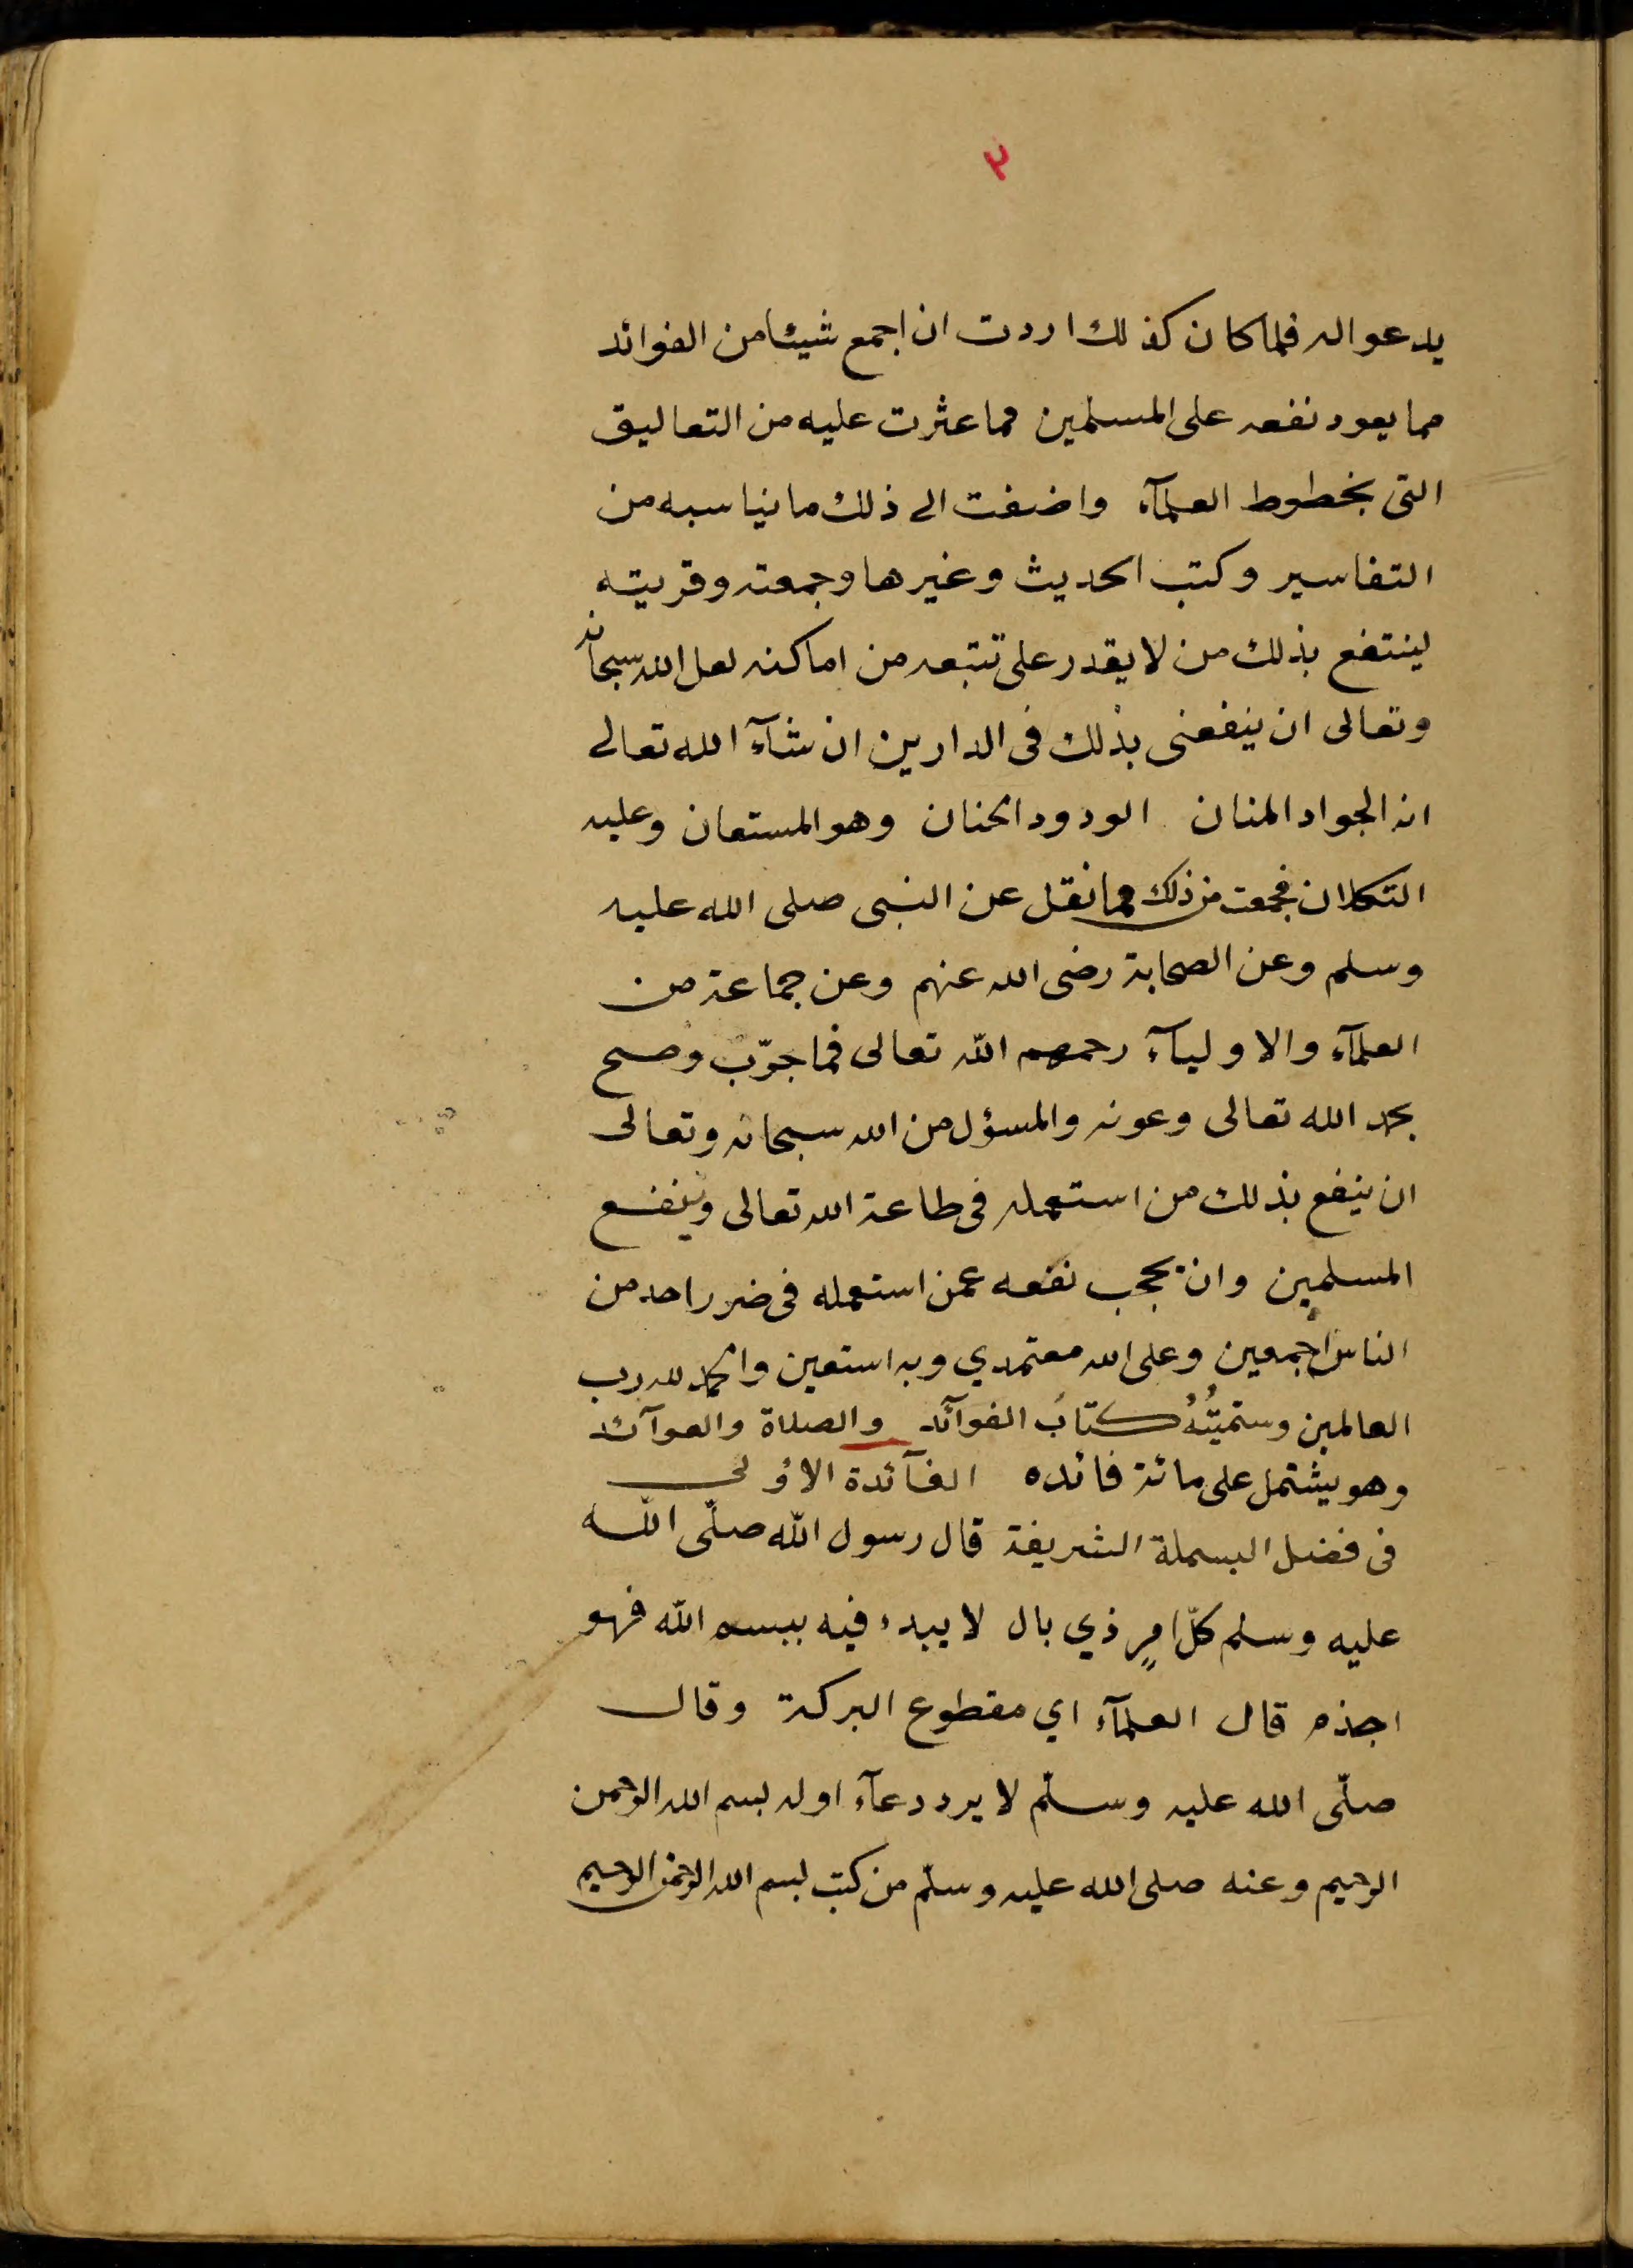 ٢
يدعو اله فلما كان كذلك اردت ان اجمع شيئا من الفوائد
مما يعود نفعه على المسلمين مما عثرت عليه من التعاليق
التى بخطوط العلمآء واضفت الى ذلك ما يناسبه من
التفاسير وكتب الحديث وغيرها وجمعته وقربته
لينتفع بذلك من لا يقدر على تتبعه من اماكنه لعل الله سبحانه
وتعالى ان ينفعنى بذلك فى الدارين ان شآء الله تعالى
انه الجواد المنان الودود الحنان وهو المستعان وعليه
التكلان فجمعت من ذلك مما نقل عن النبى صلى الله عليه
وسلم وعن الصحابة رضى الله عنهم وعن جماعة من
العلمآء والاوليآء رحمهم الله تعالى فما جرّب وصح
بحمد الله تعالى وعونه والمسؤل من الله سبحانه وتعالى
ان ينفع بذلك من استعمله فى طاعة الله تعالى وينفع
المسلمين وان يحجب نفعه عمن استعمله فى ضرر احد من
الناس اجمعين وعلى الله معتمدي وبه استعين والحمد لله رب
العالمين وسمّيتُهُ كتابُ الفوآئد والصلاة والعوآئد
وهو يشتمل على مائة فائده الفآئدة الاولى
فى فضل البسملة الشريفة قال رسول الله صلّى الله
عليه وسلم كلّ امرٍ ذي بال لا يبدء فيه ببسم الله فهو
اجذم قال العلمآء اي مقطوع البركة وقال
صلّى الله عليه وسلّم لا يرد دعآء اوله بسم الله الرحمن
الرحيم وعنه صلى الله عليه وسلّم من كتب بسم الله الرحمن الرحيم